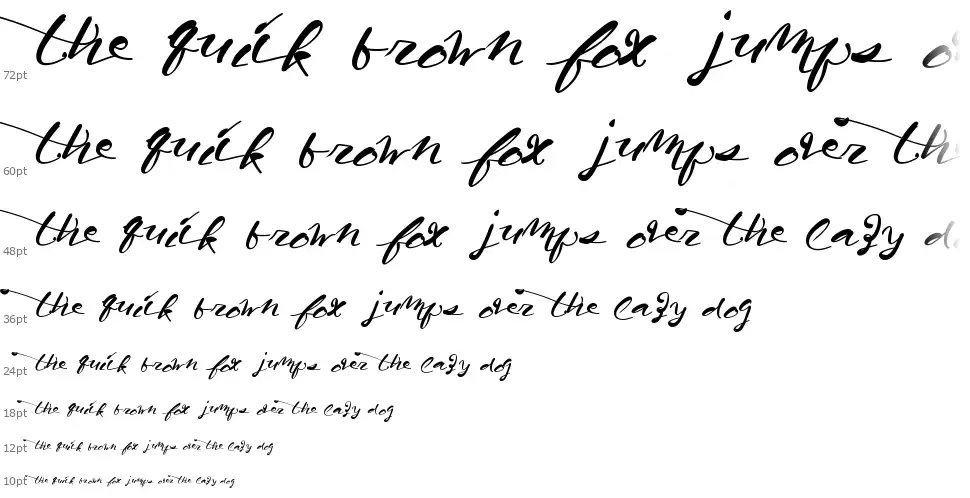 72pt the quick brown fox jumps o
60pt the quick brown fox jumps over th
48pt the quick brown fox jumps over the lazy d
36pt the quick brown fox jumps over the lazy dog
24pt the quick brown fox jumps over the lazy dog
18pt the quick brown fox jumps over the lazy dog
12pt the quick brown fox jumps over the lazy dog
10pt the quick brown fox jumps over the lazy dog